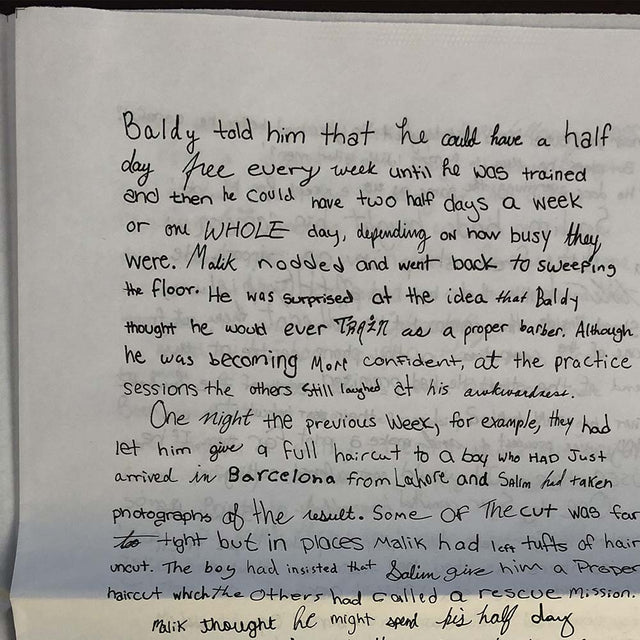 Baldy told him that he could have a half
day free every week until he was trained
and then he could have two half days a week
or one WHOLE day, depending on how busy they
were. Malik nodded and went back to sweeping
the floor. He was surprised at the idea that Baldy
thought he would ever TRAIN as a proper barber. Although
he was becoming More confident, at the practice
sessions the others still laughed at his awkwardness.
One night the previous week, for example, they had
let him give a full haircut to a boy who HAD Just
arrived in Barcelona from Lahore and Salim had taken
photographs of the result. Some OF The cut was far
too tight but in places Malik had left tufts of hair
uncut. The boy had insisted that Salim give him a Proper
haircut which the Others had called a rescue mission.
Malik thought he might spend his half day